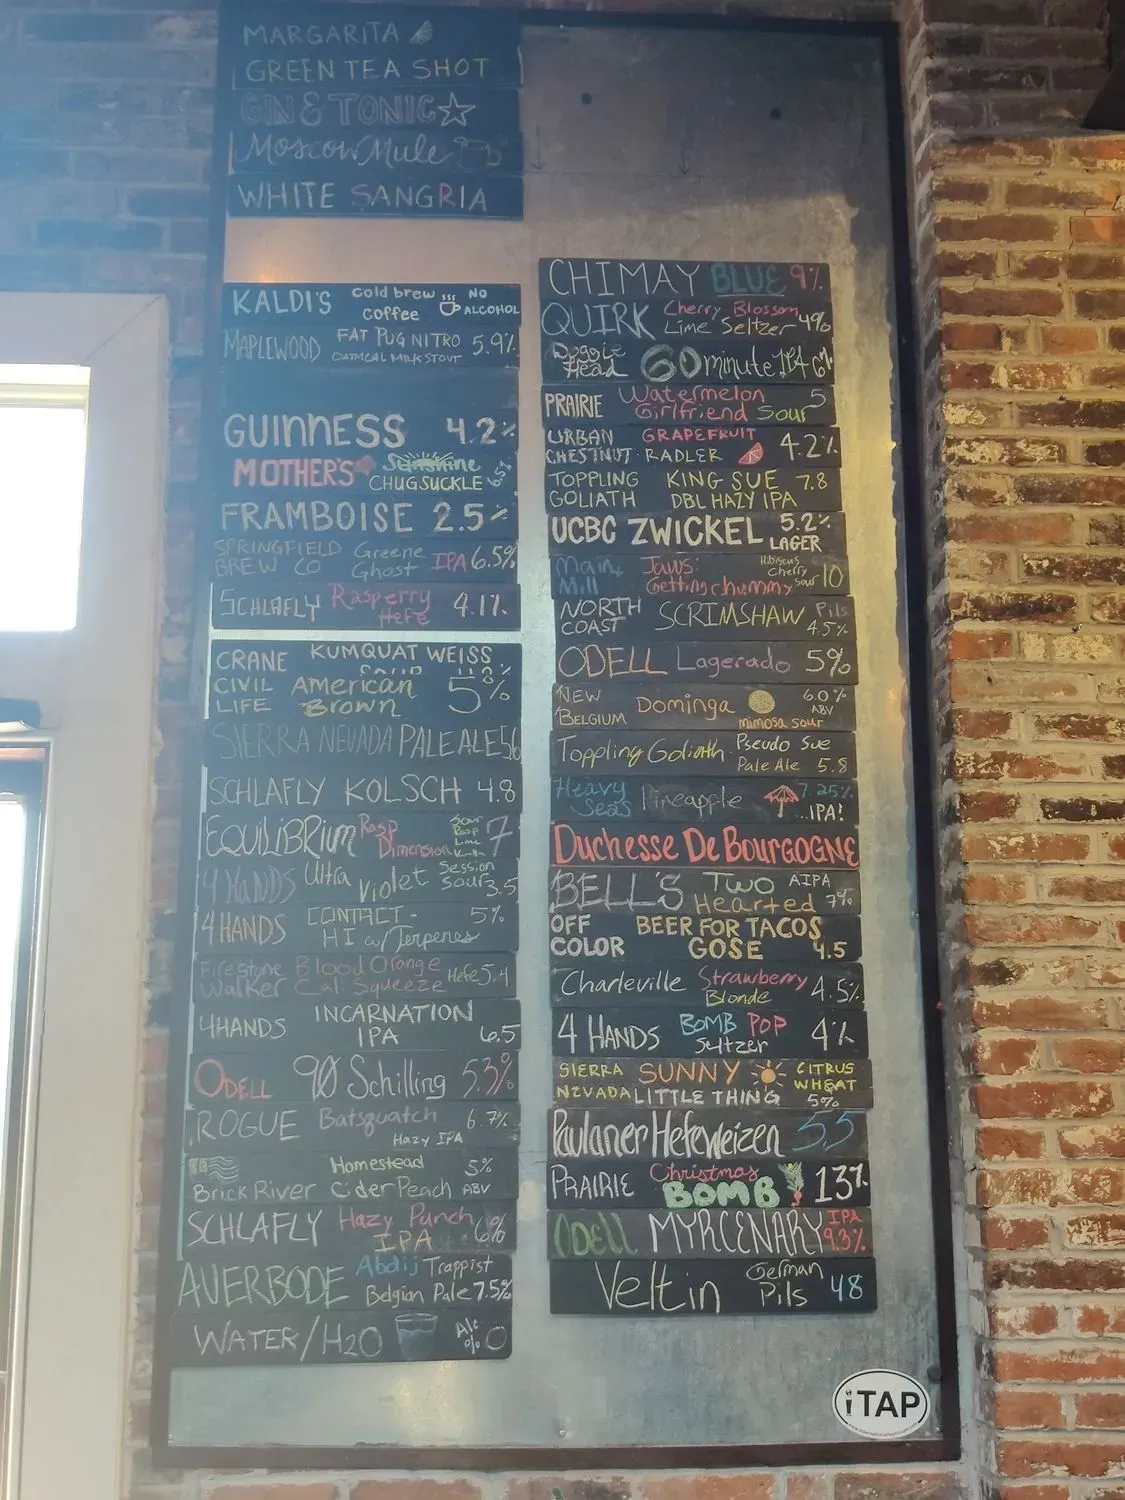 MARGARITA
GREEN TEA SHOT
GIN & TONIC
Moscow Mule
WHITE SANGRIA
KALDI'S cold brew coffee NO ALCOHOL
MAPLEWOOD FAT PUG NITRO OATMEAL MILK STOUT 5.9%
GUINNESS 4.2%
MOTHER'S Sunshine CHUGSUCKLE 6.5%
FRAMBOISE 2.5%
SPRINGFIELD BREW CO Greene Ghost IPA 6.5%
SCHLAFLY Rasperry Hefe 4.1%
CRANE KUMQUAT WEISS
CIVIL LIFE American Brown 5%
SIERRA NEVADA PALE ALE 5.6
SCHLAFLY KOLSCH 4.8
EQUILIBRIUM Rasp Dimension Sour Rasp Lime 7
4 HANDS Ultra Violet Session Sour 3.5
4 HANDS CONTACT-HI w/Terpenes 5%
Firestone Walker Blood Orange Cal Squeeze Hefe 5.4
4HANDS INCARNATION IPA 6.5
ODELL 90 Schilling 5.3%
ROGUE Batsquatch Hazy IPA 6.7%
Brick River Homestead Cider Peach 5% ABV
SCHLAFLY Hazy Punch IPA 6%
AVERBODE Abdij Trappist Belgian Pale 7.5%
WATER/H2O Alc % 0
CHIMAY BLUE 9%
QUIRK Cherry Blossom Lime Seltzer 4%
Doggie Head 60 minute IPA 6%
PRAIRIE Watermelon Girlfriend Sour 5
URBAN CHESTNUT GRAPEFRUIT RADLER 4.2%
TOPPLING GOLIATH KING SUE DBL HAZY IPA 7.8
UCBC ZWICKEL 5.2% LAGER
Main & Mill Jaws: Getting chummy Hibiscus Cherry Sour 10
NORTH COAST SCRIMSHAW Pils 4.5%
ODELL Lagerado 5%
NEW BELGIUM Dominga mimosa sour 6.0% ABV
Toppling Goliath Pseudo Sue Pale Ale 5.8
Heavy Seas Pineapple 7.25% ...IPA!
Duchesse De Bourgogne
BELL'S Two Hearted AIPA 7%
OFF COLOR BEER FOR TACOS GOSE 4.5
Charleville Strawberry Blonde 4.5%
4 HANDS BOMB POP Seltzer 4%
SIERRA NEVADA SUNNY LITTLE THING CITRUS WHEAT 5%
Paulaner Hefeweizen 5.5
PRAIRIE Christmas BOMB 13%
Odell MYRCENARY IPA 9.3%
Veltin German Pils 4.8
iTAP